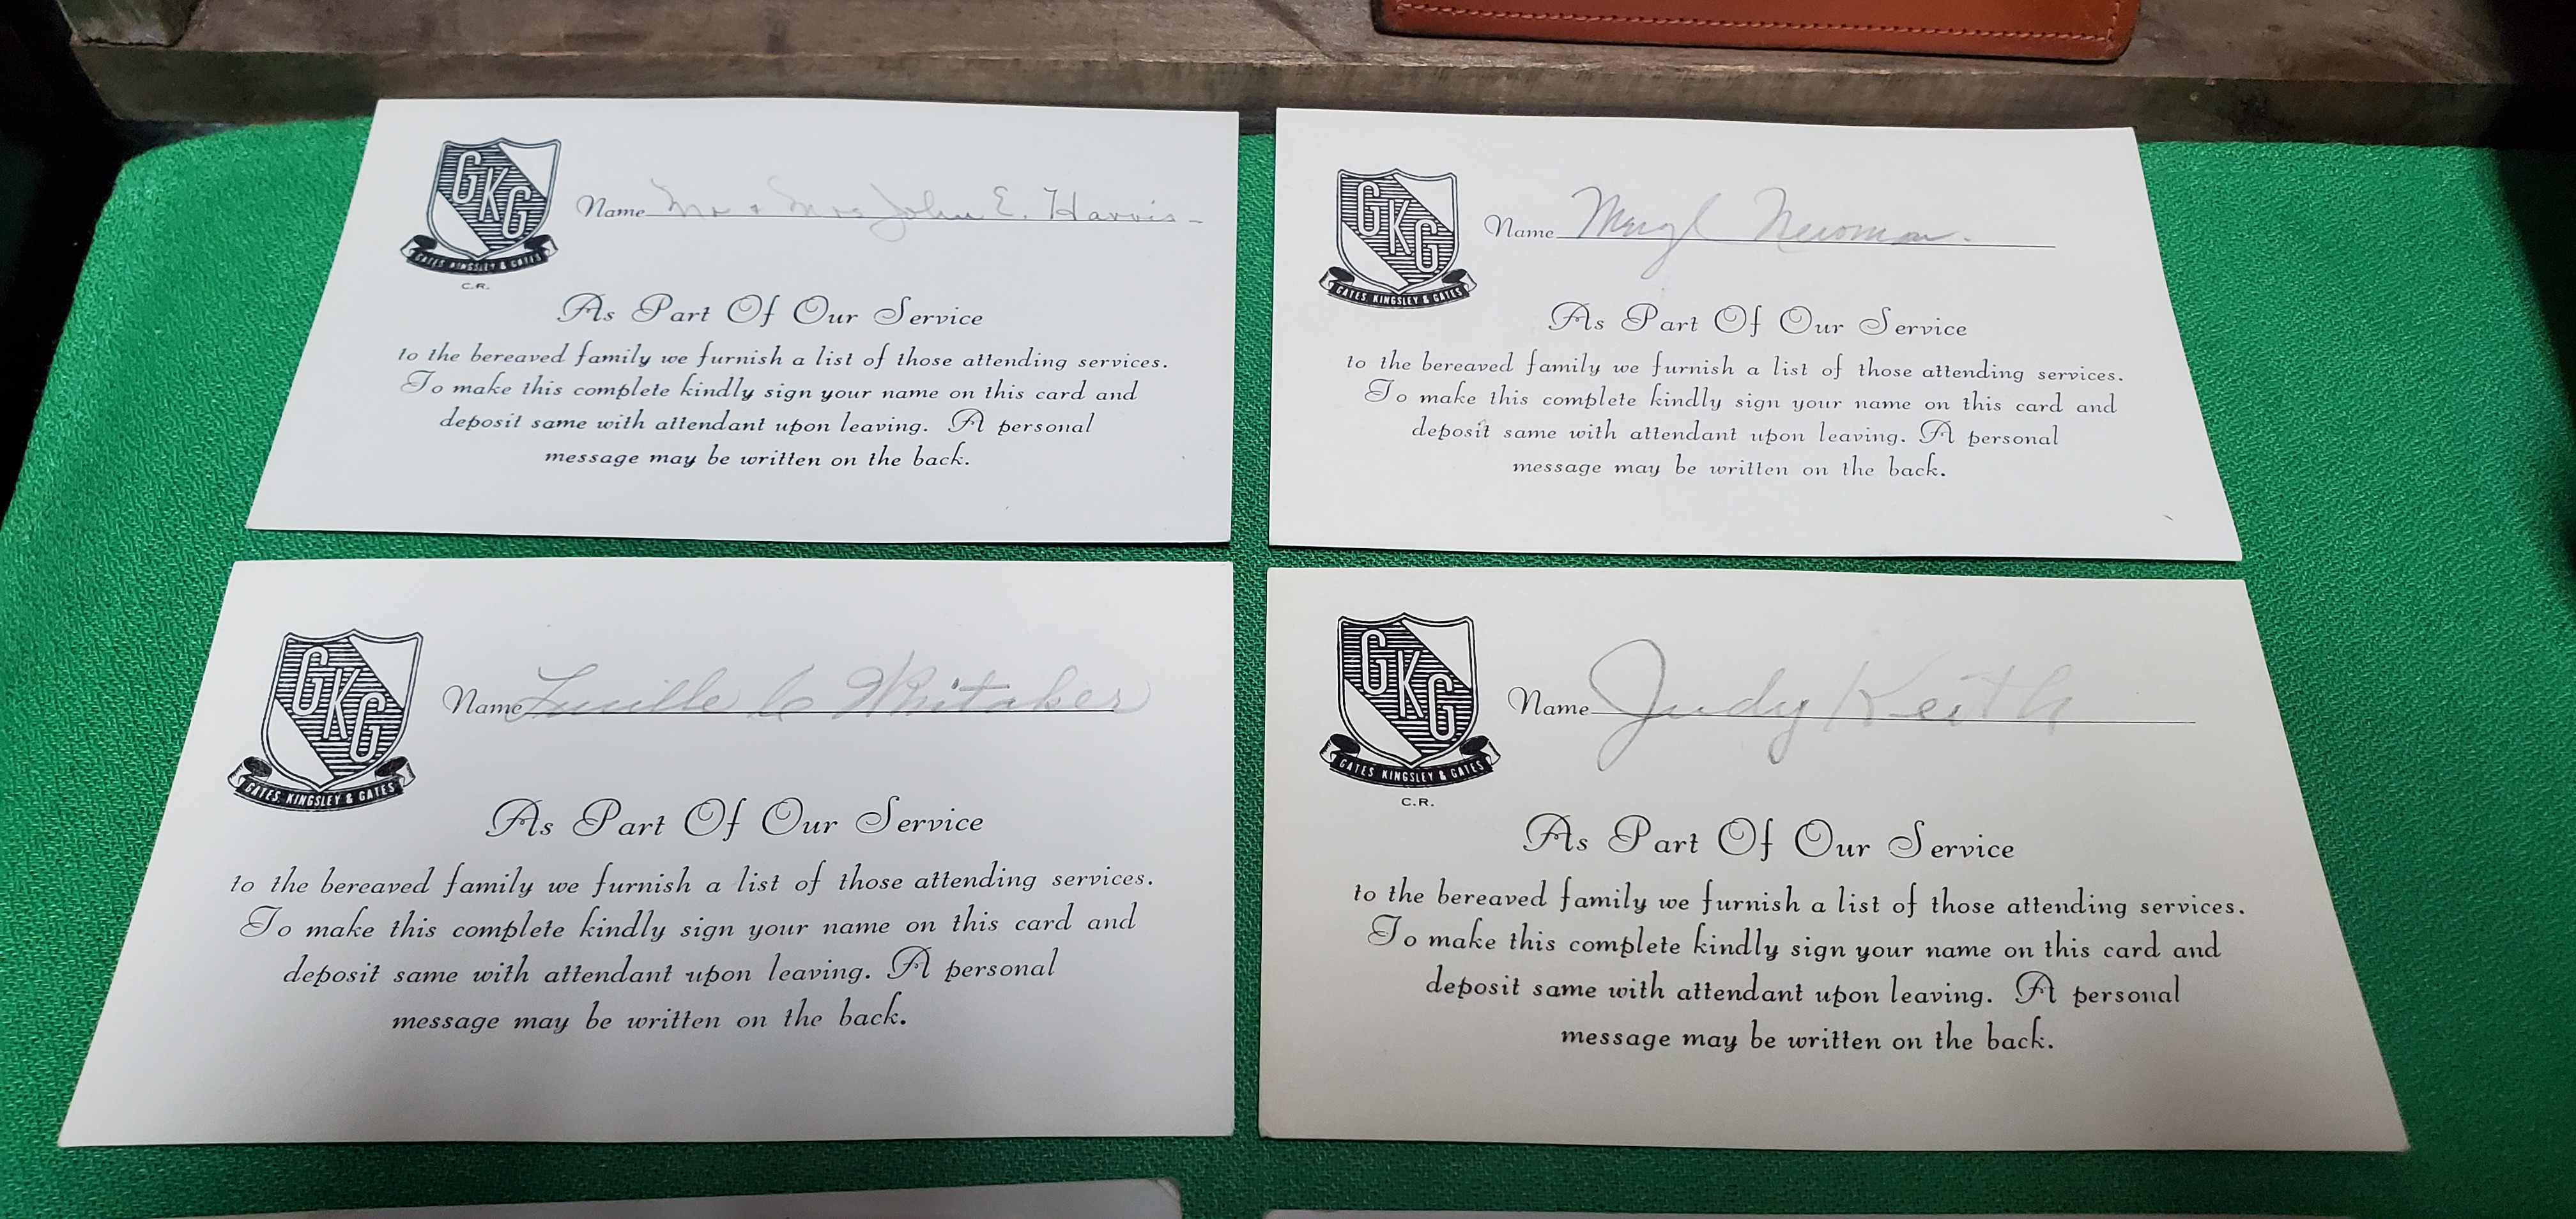 GKG
GATES, KINGSLEY & GATES
C.R.
Name Mr + Mrs John E. Harris
As Part Of Our Service
to the bereaved family we furnish a list of those attending services.
To make this complete kindly sign your name on this card and
deposit same with attendant upon leaving. A personal
message may be written on the back.
GKG
GATES, KINGSLEY & GATES
Name Newman.
As Part Of Our Service
to the bereaved family we furnish a list of those attending services.
To make this complete kindly sign your name on this card and
deposit same with attendant upon leaving. A personal
message may be written on the back.
GKG
GATES, KINGSLEY & GATES
Name Lucille C Whitaker
As Part Of Our Service
to the bereaved family we furnish a list of those attending services.
To make this complete kindly sign your name on this card and
deposit same with attendant upon leaving. A personal
message may be written on the back.
GKG
GATES, KINGSLEY & GATES
C.R.
Name Judy Keith
As Part Of Our Service
to the bereaved family we furnish a list of those attending services.
To make this complete kindly sign your name on this card and
deposit same with attendant upon leaving. A personal
message may be written on the back.